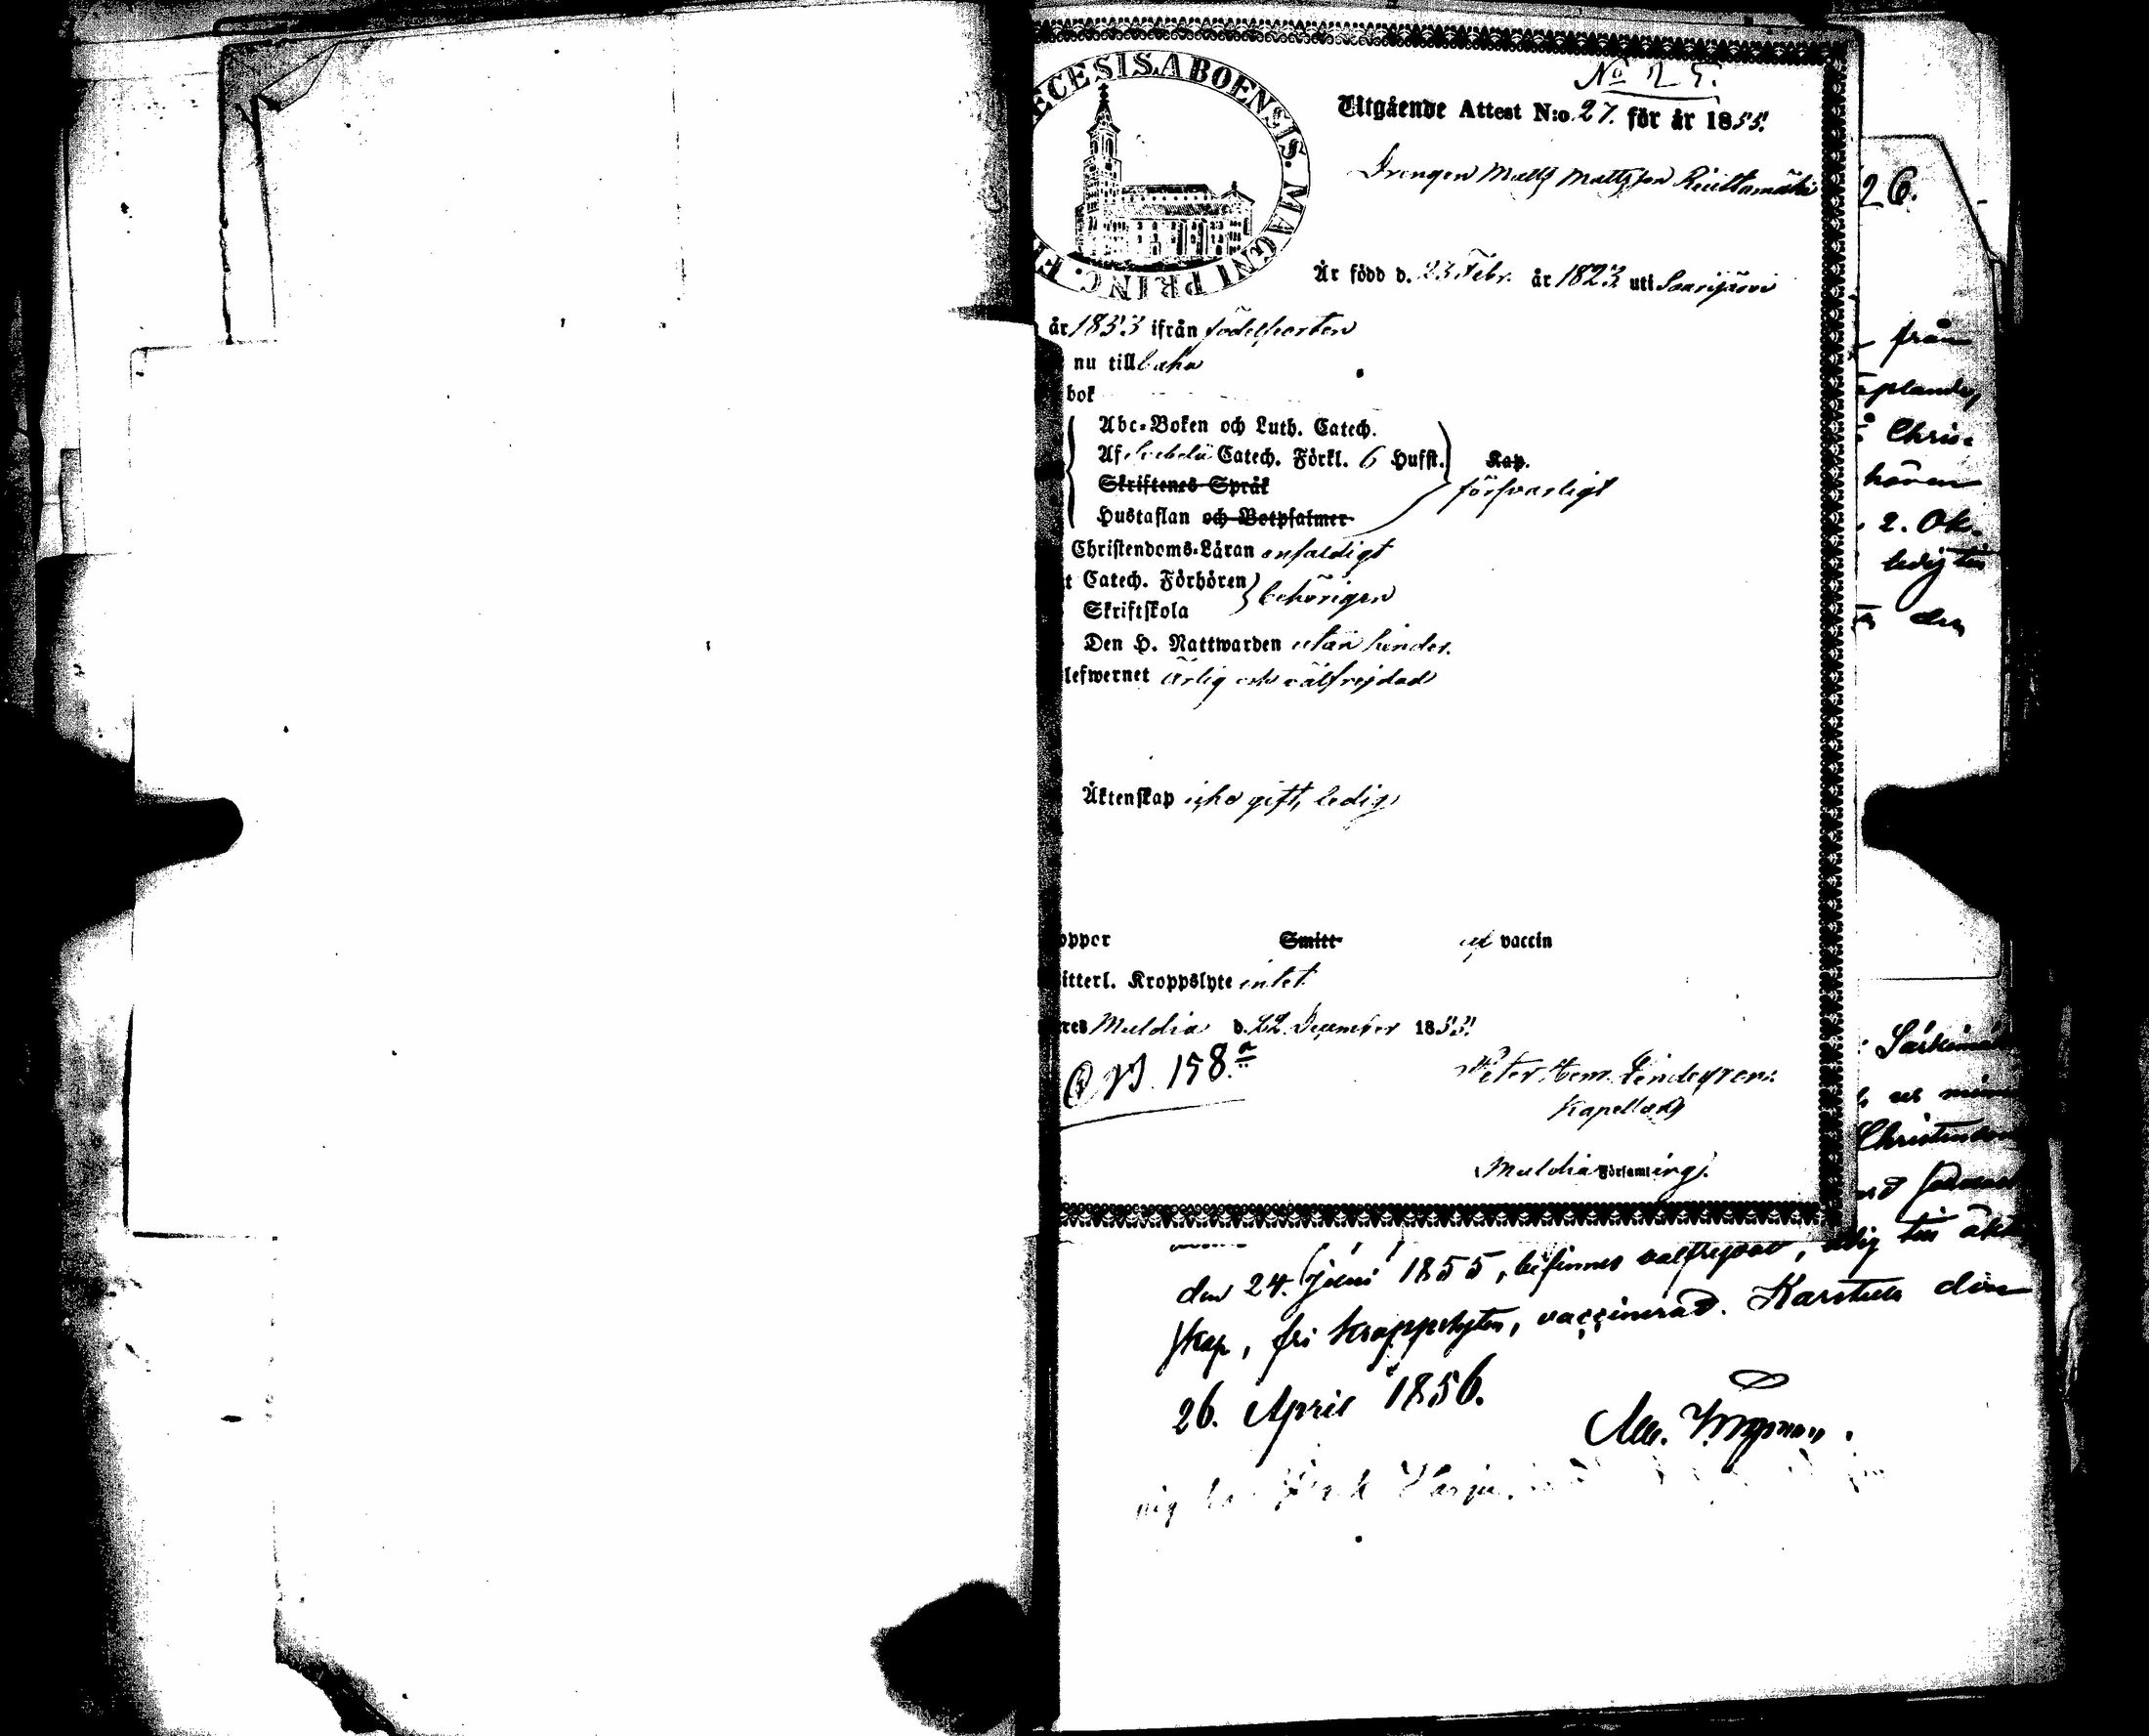 No 25.
ECESIS ABOENSIS. MAGNI PRINC. F
Utgående Attest N:o 27. för år 1855.
Drengen Matts Mattsson Riuttamäki
Är född d. 23 Febr. år 1823 uti Saarijärvi
år 1853 ifrån födelseorten
nu tillbaka
bok
Abc-Boken och Luth. Catech.
Af Svebelii Catech. Förkl. 6 Hufst. Kap.
Skriftenes Språk försvarligt
Hustaflan och Botpsalmer
Christendoms-Läran enfaldigt
t Catech. Förhören behörigen
Skriftskola
Den H. Nattwarden utan hinder.
lefwernet ärlig och välfrejdad
Äktenskap icke gift, ledig
oppor Smitt af vaccin
itterl. Kroppslyte intet
res Muldia d. 22 December 1855.
158.a
Peter Hem. Lindegren
Kapellan
Muldia Församling.
26.
från
Chris-
2. Ok-
ledig till
den
Christendom
den 24. Juni 1855, befinnes välfrejdad, ledig till äkt
skap, fri kroppslyten, vaccinerad. Karstula den
26. April 1856.